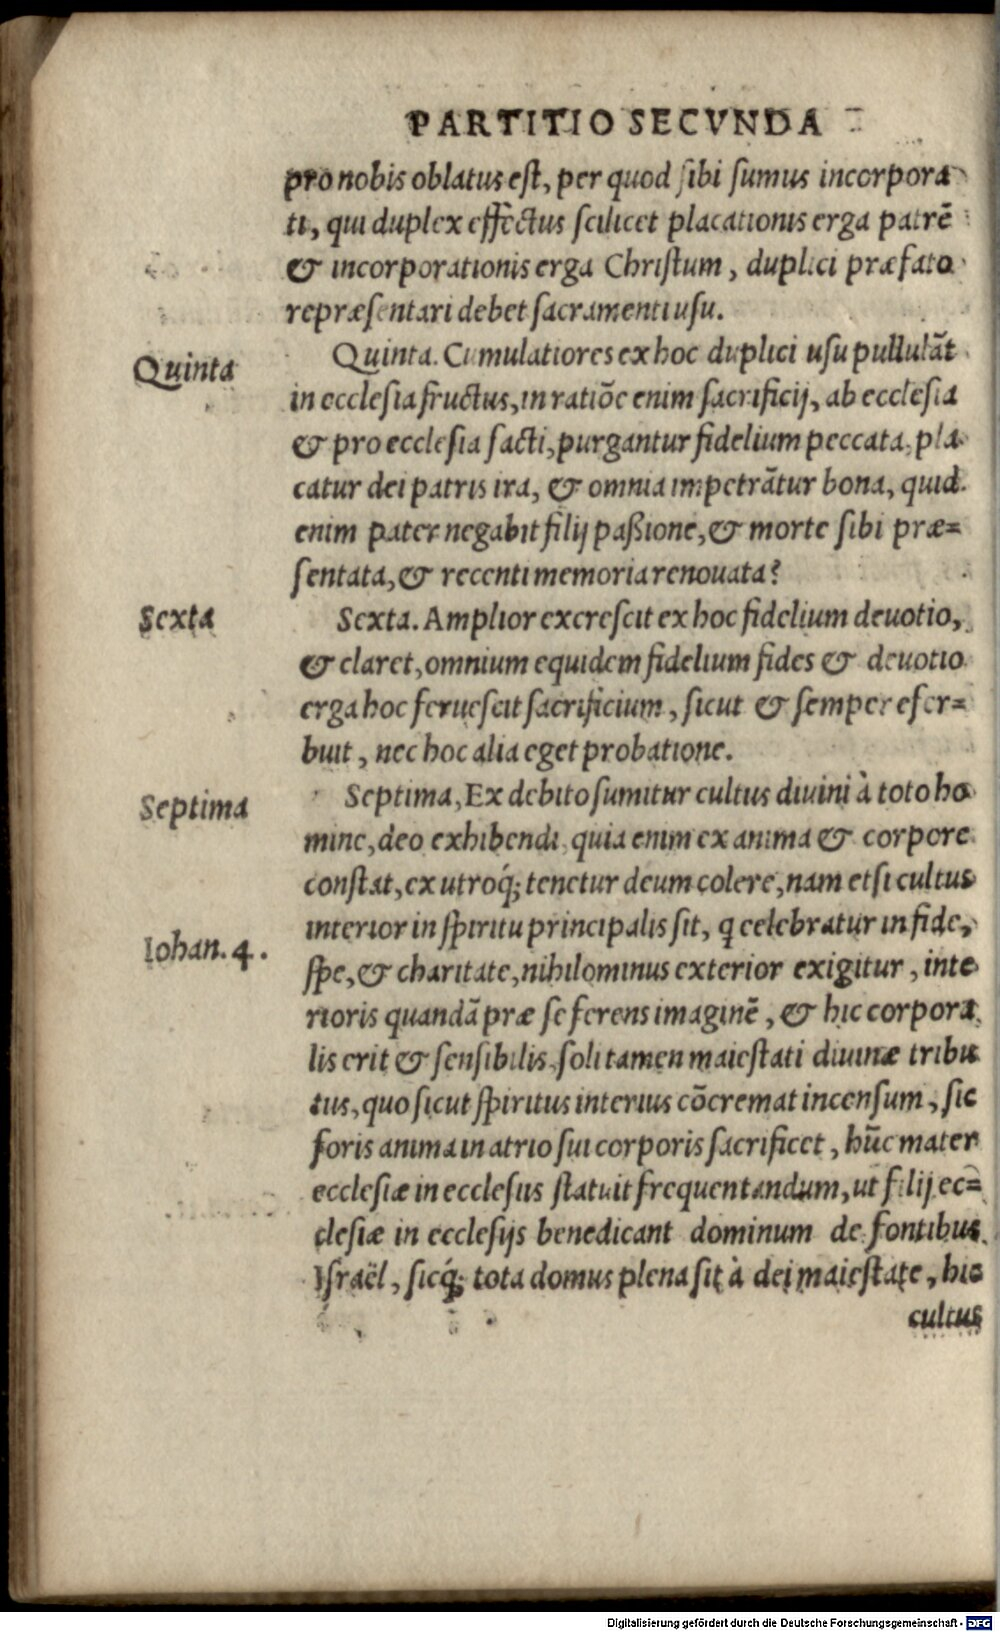 PARTITIO SECVNDA
pro nobis oblatus est, per quod sibi sumus incorpora
ti, qui duplex effectus scilicet placationis erga patrē
& incorporationis erga Christum, duplici præfato
repræsentari debet sacramenti usu.
Quinta
Quinta. Cumulatiores ex hoc duplici usu pullulāt
in ecclesia fructus, in ratiōe enim sacrificij, ab ecclesia
& pro ecclesia facti, purgantur fidelium peccata, pla
catur dei patris ira, & omnia impetrātur bona, quid
enim pater negabit filij paßione, & morte sibi præ=
sentata, & recenti memoria renouata?
Sexta
Sexta. Amplior excrescit ex hoc fidelium deuotio,
& claret, omnium equidem fidelium fides & deuotio
erga hoc feruescit sacrificium, sicut & semper efer=
buit, nec hoc alia eget probatione.
Septima
Septima, Ex debito sumitur cultus diuini à toto ho
mine, deo exhibendi, quia enim ex anima & corpore
constat, ex utroq́; tenetur deum colere, nam etsi cultus
interior in spiritu principalis sit, q celebratur in fide,
Iohan. 4.
spe, & charitate, nihilominus exterior exigitur, inte
rioris quandā præ se ferens imaginē, & hic corpora
lis erit & sensibilis, soli tamen maiestati diuinæ tribu
tus, quo sicut spiritus interius cōcremat incensum, sic
foris anima in atrio sui corporis sacrificet, hūc mater
ecclesiæ in ecclesiis statuit frequentandum, ut filij ec=
clesiæ in ecclesijs benedicant dominum de fontibus
Israël, sicq́; tota domus plena sit à dei maiestate, hic
cultus
Digitalisierung gefördert durch die Deutsche Forschungsgemeinschaft - DFG